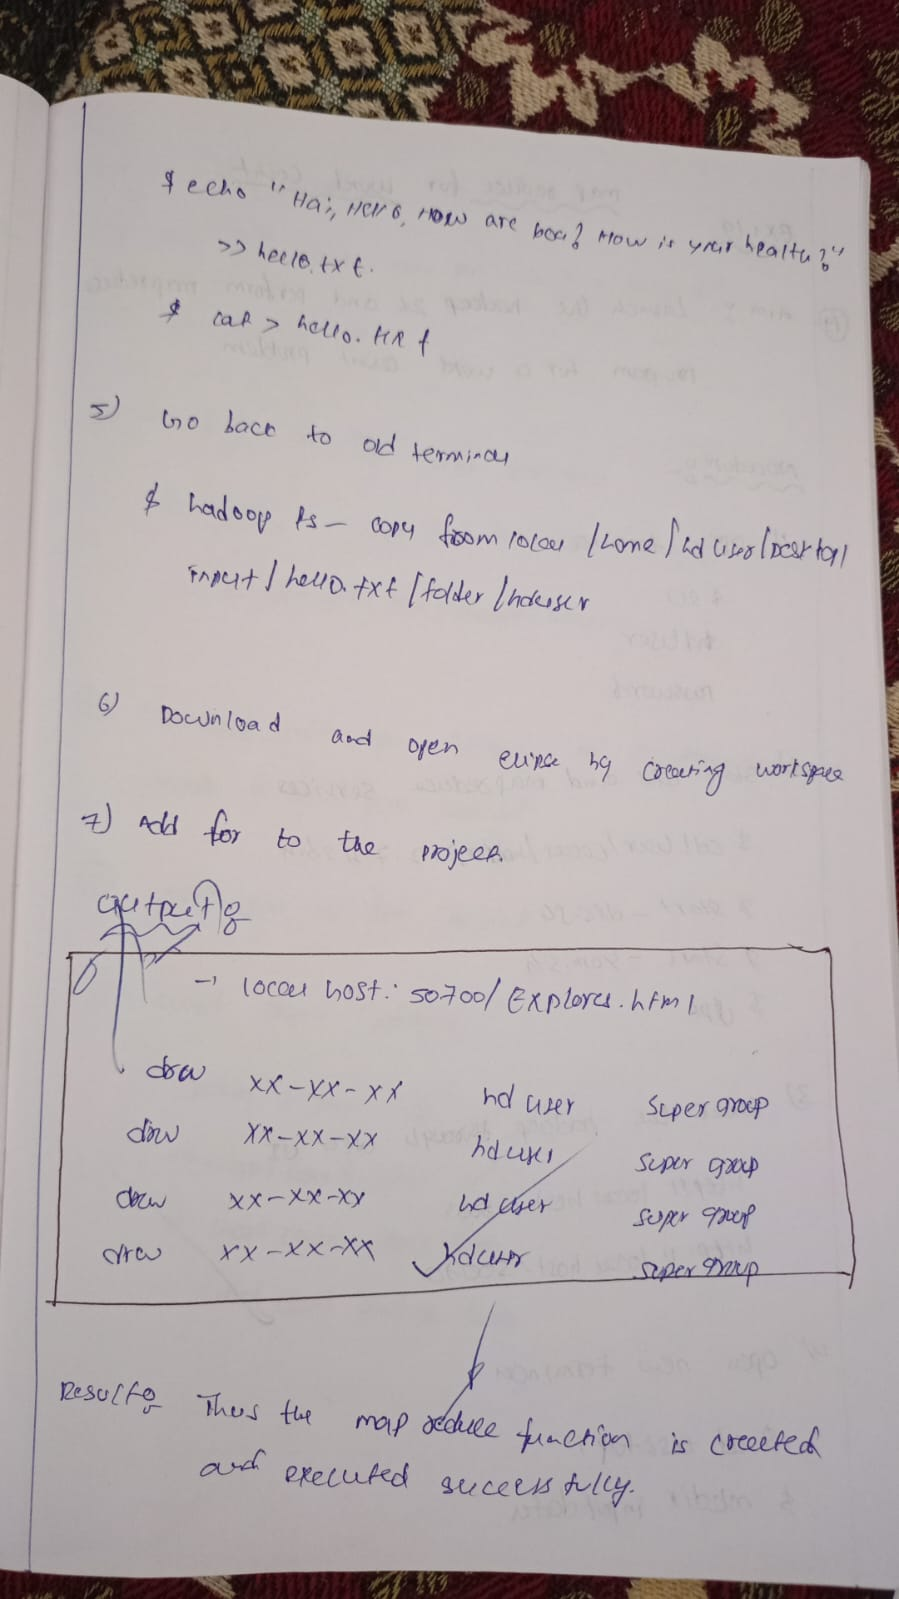 $ echo "Hai, Hello, How are boa? How is your health?"
>> hello.txt.
$ cat > hello.txt
5) Go back to old terminal
$ hadoop fs - copy from local /home/hduser/Desktop/
input/hello.txt /folder/hduser
6) Download and open eclipse by creating workspace
7) Add for to the project.
output:
→ local host: 50700/Explorer.html
drw xx-xx-xx hd user Super group
drw xx-xx-xx hduser super group
drw xx-xx-xx hd user super group
drw xx-xx-xx hduser super group
Result: Thus the map reduce function is created
and executed successfully.